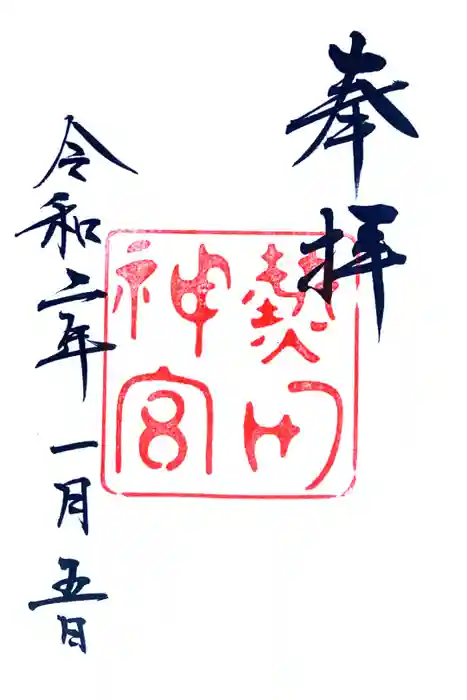 奉拝
熱田
神宮
令和二年一月五日